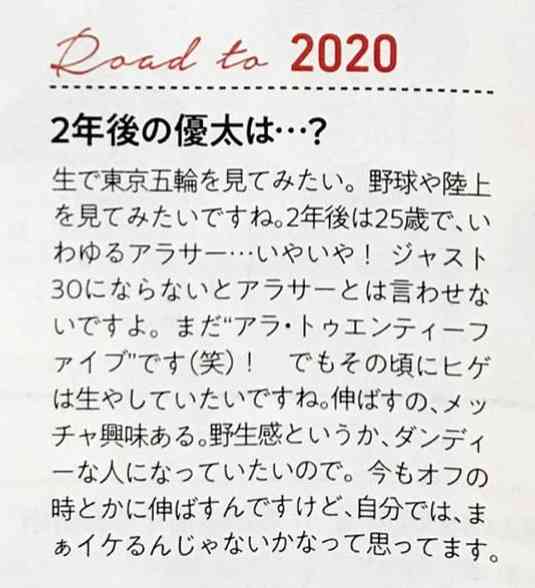 Road to 2020
2年後の優太は…?
生で東京五輪を見てみたい。野球や陸上
を見てみたいですね。2年後は25歳で、い
わゆるアラサー…いやいや！ ジャスト
30にならないとアラサーとは言わせな
いですよ。まだ“アラ・トゥエンティーフ
ァイブ”です(笑)！　でもその頃にヒゲ
は生やしていたいですね。伸ばすの、メッ
チャ興味ある。野生感というか、ダンディ
ーな人になっていたいので。今もオフの
時とかに伸ばすんですけど、自分では、ま
ぁイケるんじゃないかなって思ってます。